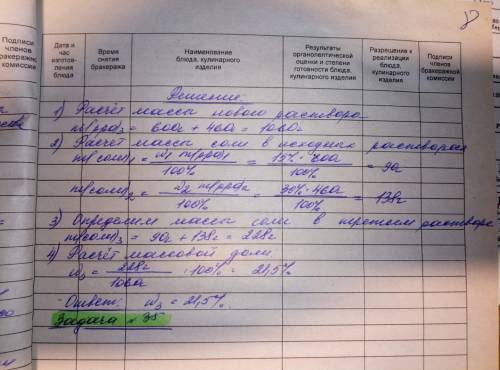 8
Подписи членов бракеражной комиссии
Дата и час изготов-ления блюда
Время снятия бракеража
Наименование блюда, кулинарного изделия
Результаты органолептической оценки и степени готовности блюда, кулинарного изделия
Разрешение к реализации блюда, кулинарного изделия
Подписи членов бракеражной комиссии
Решение:
1) Расчёт массы нового раствора
m(рра)3 = 600г + 460г = 1060г
2) Расчёт массы соли в исходных растворах
m(соли)1 = ω1 m(рра)1 / 100% = 15% · 600 / 100% = 90г
m(соли)2 = ω2 m(рра)2 / 100% = 30% · 460г / 100% = 138г
3) Определим массы соли в третьем растворе
m(соли)3 = 90г + 138г = 228г
4) Расчёт массовой доли
ω3 = 228г / 1060г · 100% = 21,5%
Ответ: ω3 = 21,5%.
Задача № 35